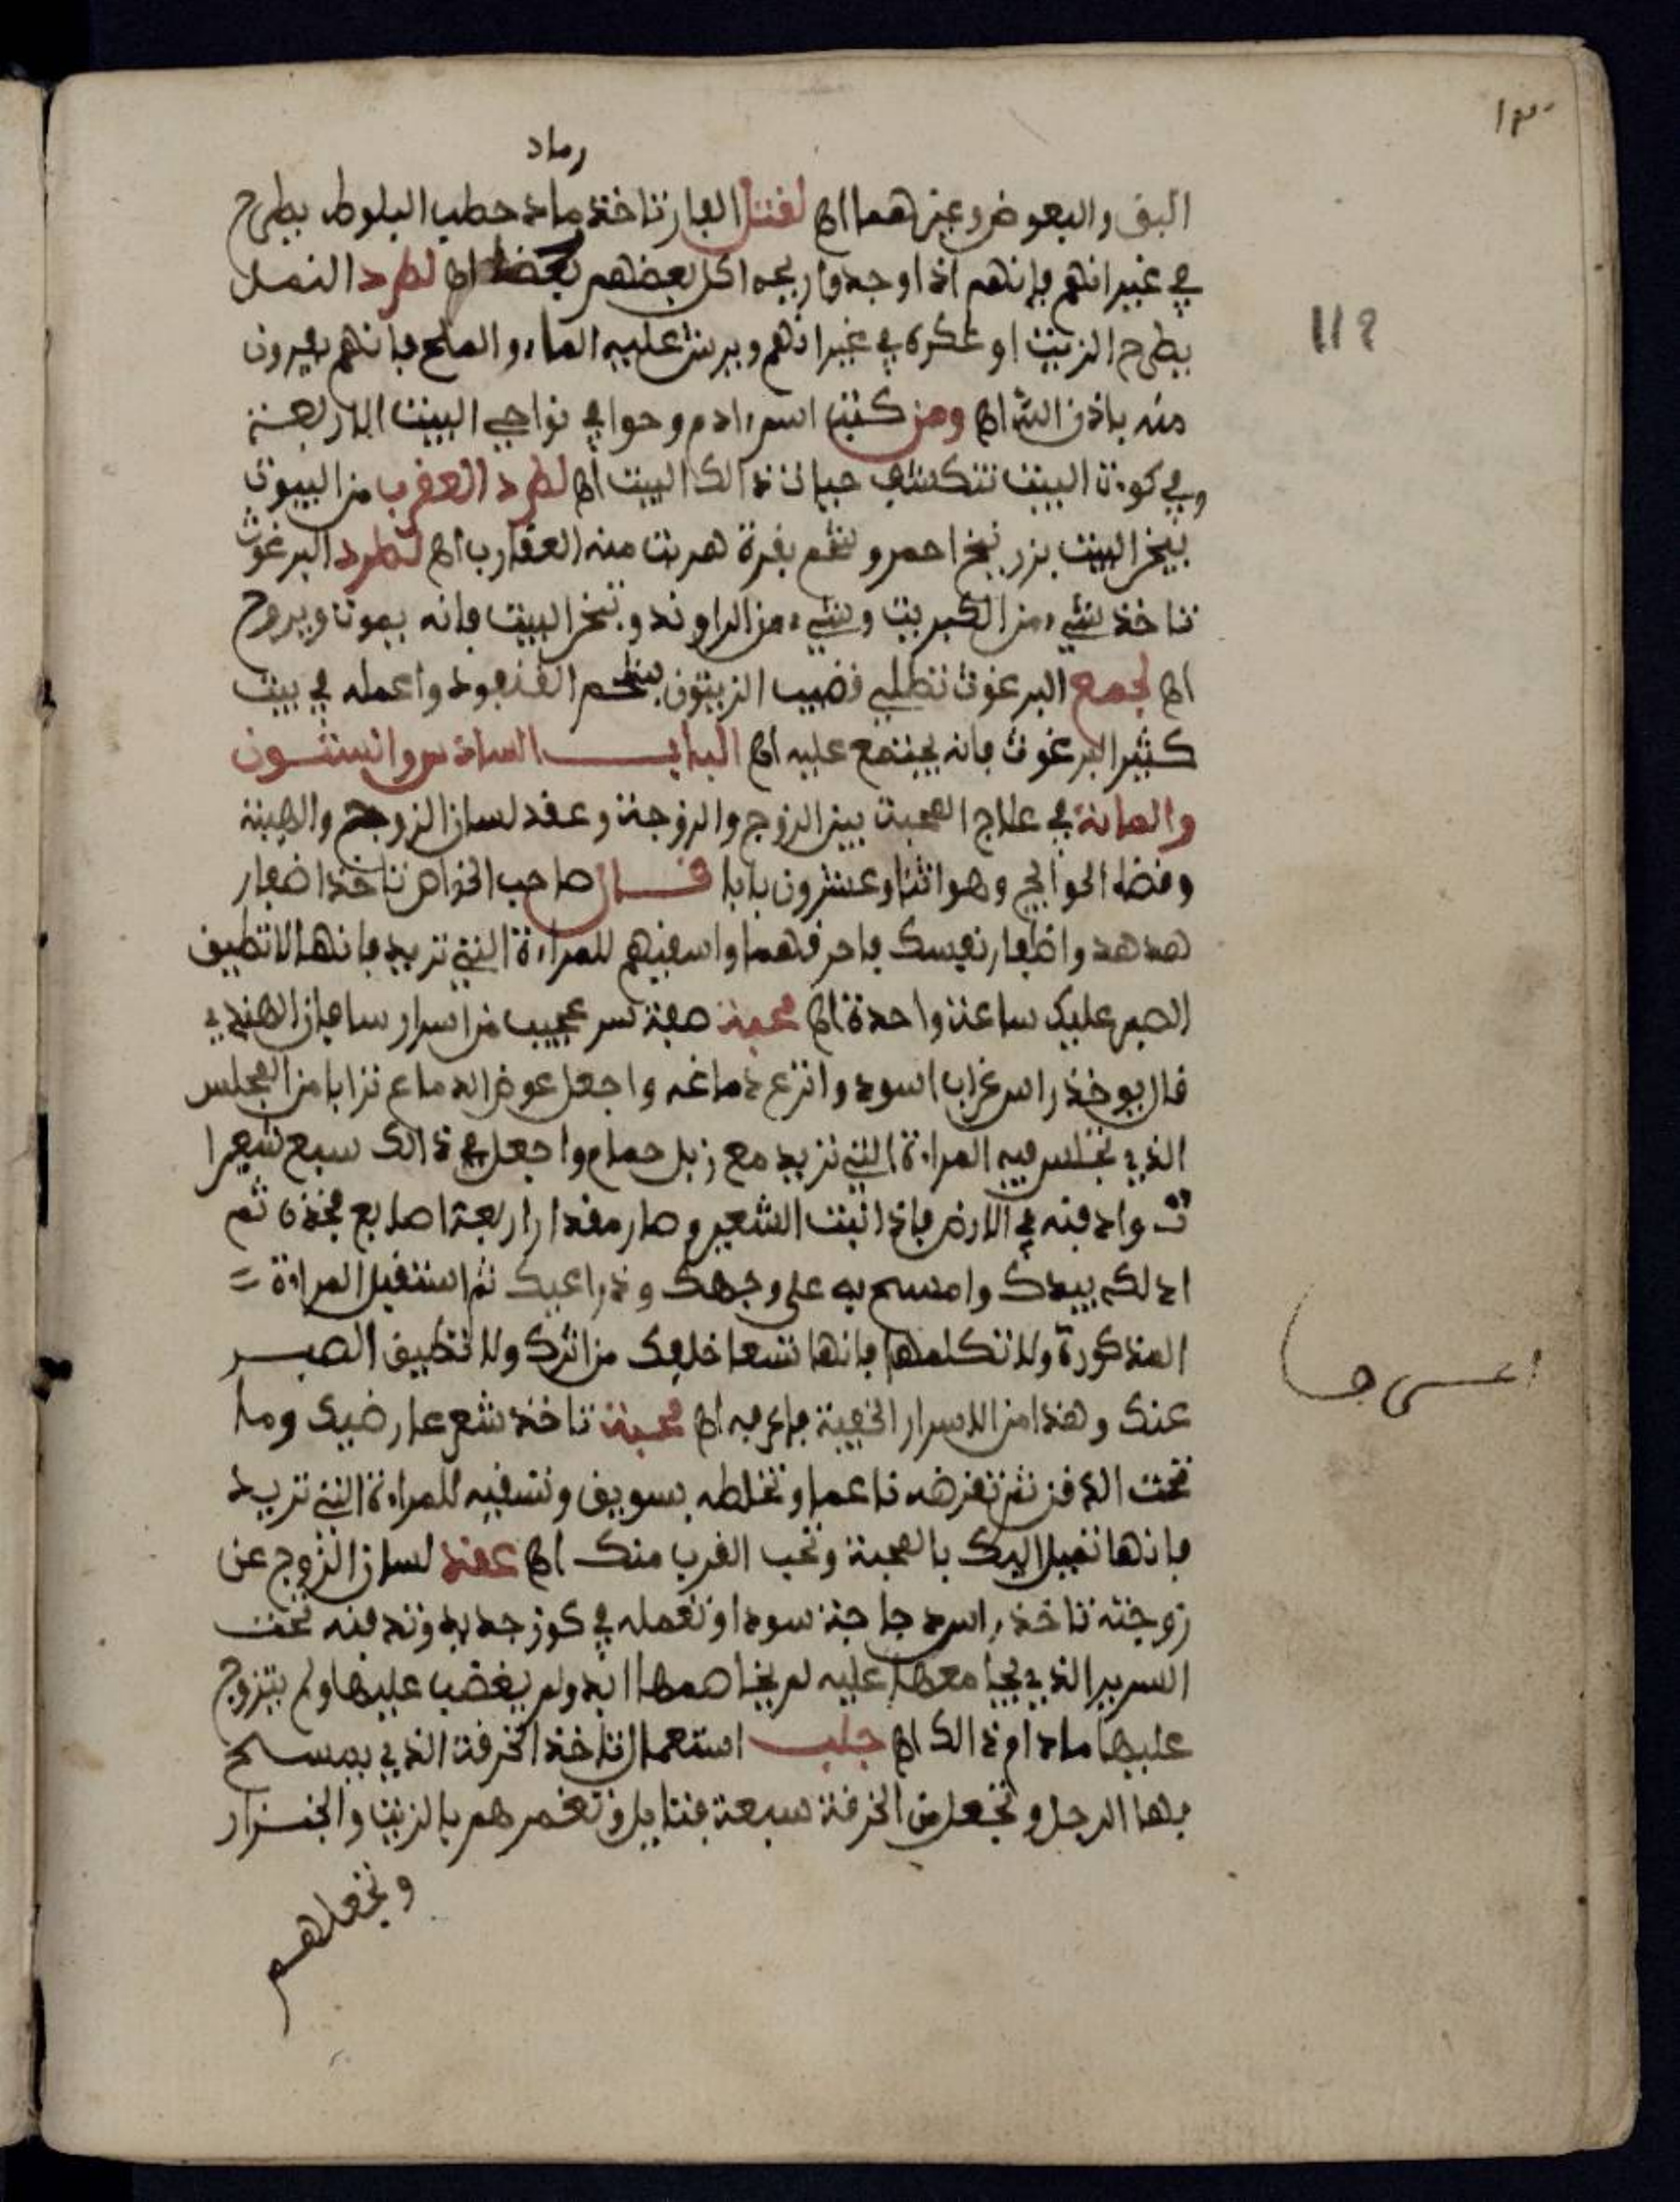 ١٣٠
رماد
البق والبعوض وغيرهما اه لقتل الفار تاخذ رماد حطب البلوط يطرح
في غيرانهم فإنهم اذا وجدوا ريحه اكل بعضهم بعضا اه لطرد النمل
يطرح الزيت او عكره في غيرانهم ويرش عليه الماء والملح فانهم يفرون
منه باذن الله اه ومن كتب اسم ءادم وحوا في نواحي البيت الاربعة
وفي كوءت البيت حيات ذالك البيت اه لطرد العقرب من البيوت
يبخر البيت بزرنيخ احمر وشحم بقرة هربت منه العقارب اه لطرد البرغوث
تاخذ شيء من الكبريت وشيء من الراوند وتبخر البيت فانه يموت ويروح
اه لجمع البرغوث تطلي قضيب الزيتون بشحم القنفود واعمله في بيت
كثير البرغوث فانه يجتمع عليه اه الباب السادس والستون
والمائة في علاج المحبة بين الزوج والزوجة وعقد لسان الزوج والهيبة
وقضا الحوايج وهو اثنا وعشرون بابا قال صاحب الخواص تاخذ اضفار
هدهد واظفار نفسك فاحرقهما واسقيهم للمراءة التي تريد فانها لا تطيق
الصبر عليك ساعة واحدة اه محبة صفة سر عجيب من اسرار ساهان الهندي
قال يوخذ راس غراب اسود وانزع دماغه واجعل عوض الدماغ ترابا من المجلس
الذي تجلس فيه المراءة التي تريد مع زبل حمام واجعل في ذالك سبع شعيرا
ت وادفنه في الارض فاذا نبت الشعير وصار مقدار اربعة اصابع فخذه ثم
ادلكه بيدك وامسح به على وجهك وذراعيك ثم استقبل المراءة =
المذكورة ولا تكلمها فانها تسعا خلفك من اثرك ولا تطيق الصبر
عنك وهذا من الاسرار الخفية فاعرفه اه محبة تاخذ شعر عارضيك وما
تحت الدقن ثم تقرضه ناعما وتخلطه بسويق وتسقيه للمراءة التي تريد
فانها تميل اليك بالمحبة وتحب القرب منك اه عقد لسان الزوج عن
زوجته تاخذ راس دجاجة سودا وتعمله في كوز جديد وتدفنه تحت
السرير الذي يجامعها عليه لم يخاصمها ابد ولم يغضب عليها ولم يتزوج
عليها مادام ذالك اه جلب استعمال تاخذ الخرقة الذي يمسح
بها الرجل وتجعل من الخرقة سبعة فتايل وتغمرهم بالزيت والجنزار
وتجعلهم